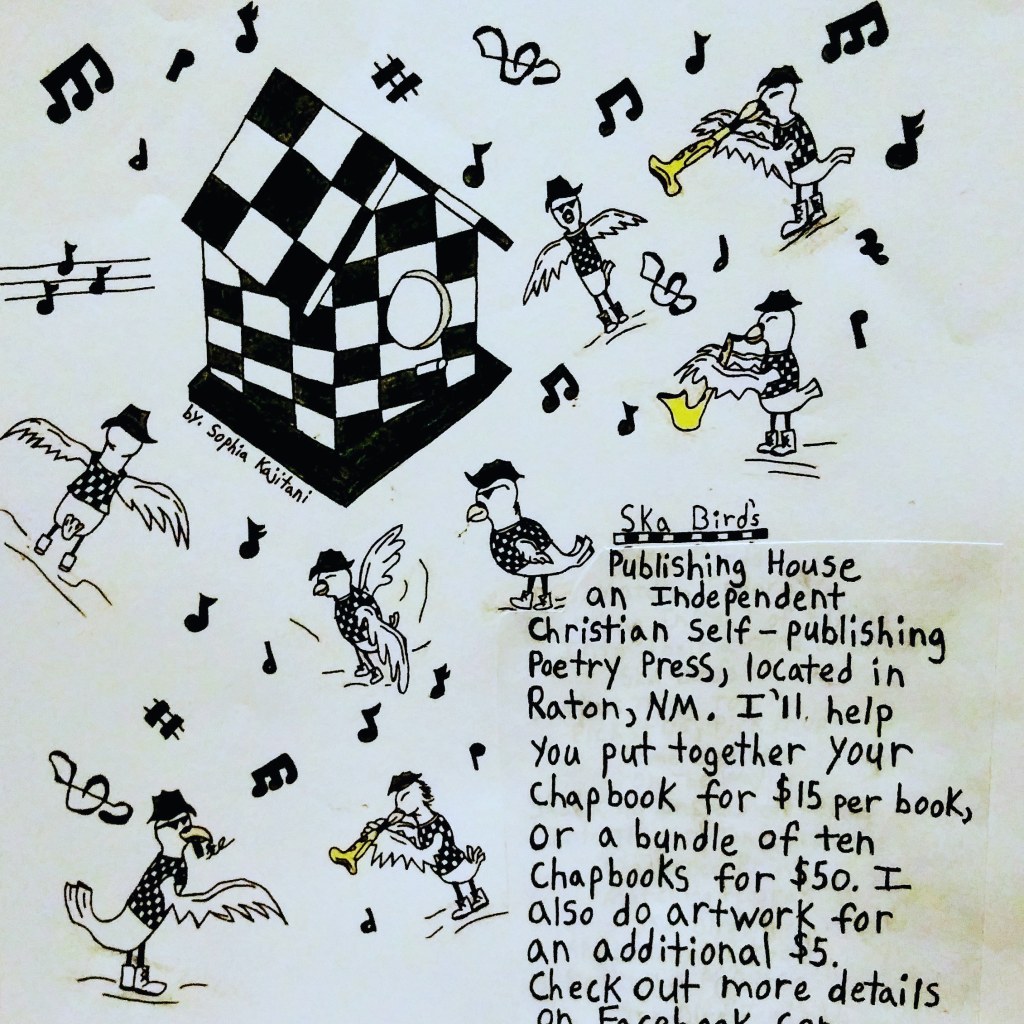 by. Sophia Kajitani
Ska Bird's
Publishing House
an Independent
Christian Self-publishing
Poetry Press, located in
Raton, NM. I'll help
you put together your
Chapbook for $15 per book,
or a bundle of ten
Chapbooks for $50. I
also do artwork for
an additional $5.
Check out more details
on Facebook.com